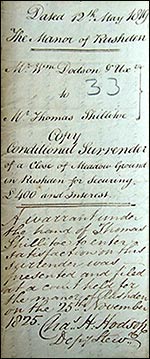 Dated 12th May 1819
The Manor of Rushden
Mr. Wm Dodson & Ux
33
to
Mr Thomas Phillitoe
Copy
Conditional Surrender
of a Close of Meadow Ground
in Rushden for Securing
£400 and Interest
A warrant under
the hand of Thomas
to enter
Satisfaction on this
Surrender was
presented and filed
at a court held for
the manor of Rushden
on the 25th December
1825
Chas. H. Hodson
Depy Stewd